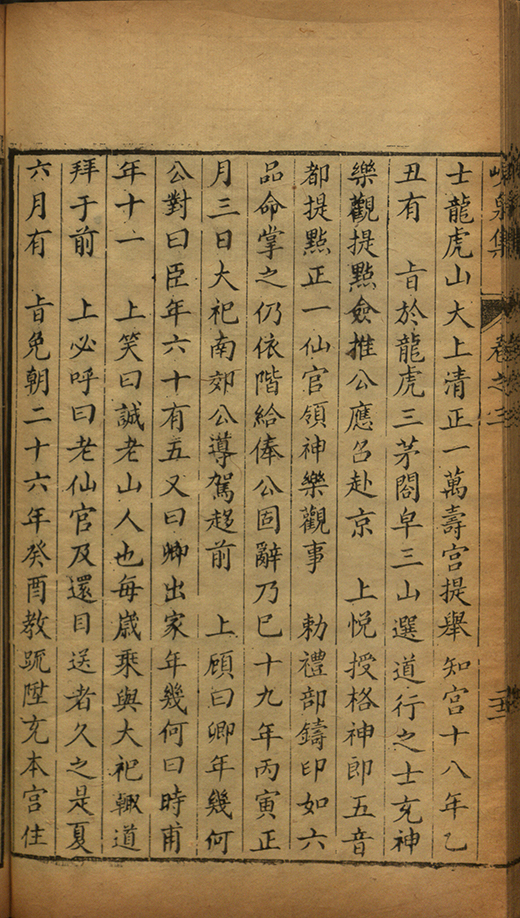 峴泉集 卷之三
士龍虎山大上清正一萬壽宮提舉知宮十八年乙
丑有 旨於龍虎三茅閤皁三山選道行之士充神
樂觀提點僉推公應召赴京 上悅授格神郎五音
都提點正一仙官領神樂觀事 勅禮部鑄印如六
品命掌之仍依階給俸公固辭乃已十九年丙寅正
月三日大祀南郊公導駕趍前 上顧曰卿年幾何
公對曰臣年六十有五又曰卿出家年幾何曰時甫
年十一 上笑曰誠老山人也每歲乘輿大祀輙道
拜于前 上必呼曰老仙官及還目送者久之是夏
六月有 旨免朝二十六年癸酉教䟽陞充本宮住